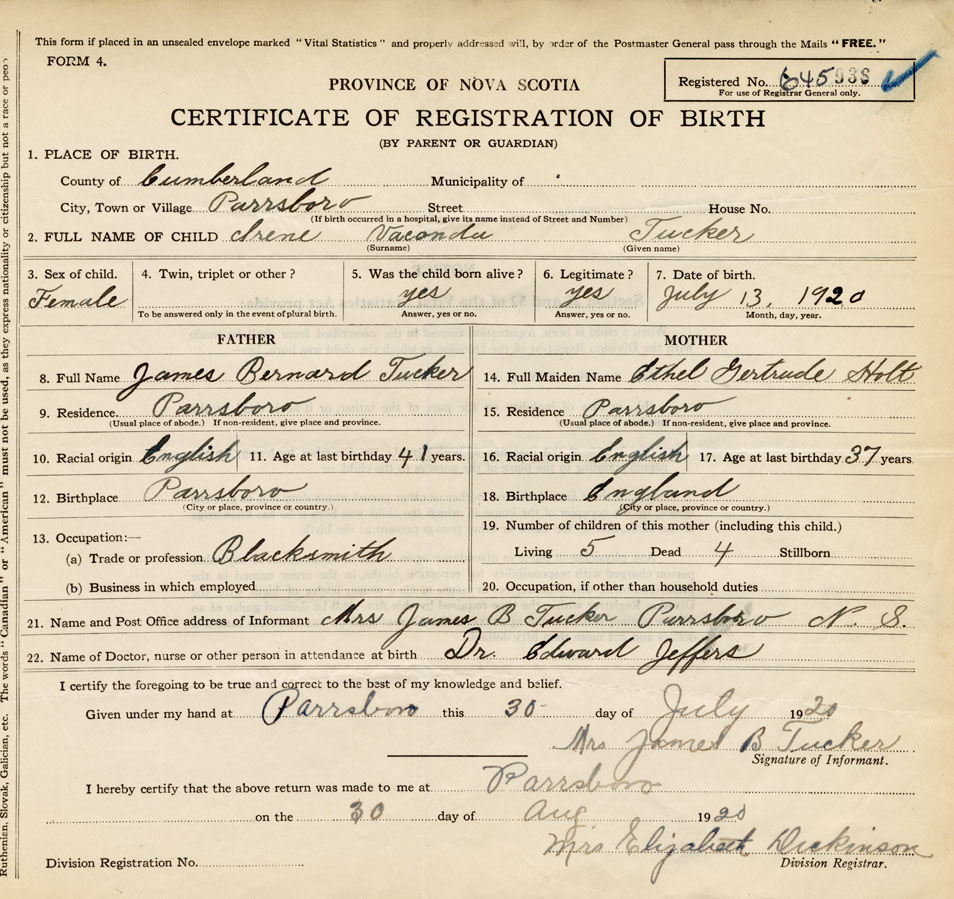 This form if placed in an unsealed envelope marked "Vital Statistics" and properly addressed will, by order of the Postmaster General pass through the Mails "FREE."
FORM 4.
Registered No. 645936
For use of Registrar General only.
PROVINCE OF NOVA SCOTIA
CERTIFICATE OF REGISTRATION OF BIRTH
(BY PARENT OR GUARDIAN)
1. PLACE OF BIRTH.
County of Cumberland Municipality of
City, Town or Village Parrsboro Street House No.
(If birth occurred in a hospital, give its name instead of Street and Number)
2. FULL NAME OF CHILD Irene Vaconda Tucker
(Surname) (Given name)
3. Sex of child. 4. Twin, triplet or other? 5. Was the child born alive? 6. Legitimate? 7. Date of birth.
Female yes yes July 13, 1920
To be answered only in the event of plural birth. Answer, yes or no. Answer, yes or no. Month, day, year.
FATHER
8. Full Name James Bernard Tucker
9. Residence. Parrsboro
(Usual place of abode.) If non-resident, give place and province.
10. Racial origin English 11. Age at last birthday 41 years.
12. Birthplace Parrsboro
(City or place, province or country.)
13. Occupation:—
(a) Trade or profession Blacksmith
(b) Business in which employed
MOTHER
14. Full Maiden Name Ethel Gertrude Holt
15. Residence Parrsboro
(Usual place of abode.) If non-resident, give place and province.
16. Racial origin English 17. Age at last birthday 37 years
18. Birthplace England
(City or place, province or country.)
19. Number of children of this mother (including this child.)
Living 5 Dead 4 Stillborn
20. Occupation, if other than household duties
21. Name and Post Office address of Informant Mrs James B Tucker Parrsboro N. S.
22. Name of Doctor, nurse or other person in attendance at birth Dr. Edward Jeffers
I certify the foregoing to be true and correct to the best of my knowledge and belief.
Given under my hand at Parrsboro this 30 day of July 1920
Mrs James B Tucker
Signature of Informant.
I hereby certify that the above return was made to me at Parrsboro
on the 30 day of Aug 1920
Mrs Elizabeth Dickinson
Division Registration No. Division Registrar.
Ruthenien, Slovak, Galician, etc. The words "Canadian" or "American" must not be used, as they express nationality or citizenship but not a race or